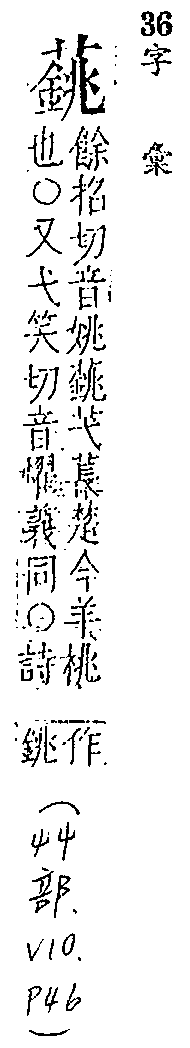 36 字彙
餘招切音姚芅萇楚今羊桃
也○又弋笑切音燿義同○詩
作
銚
(艸部. V10. P46)